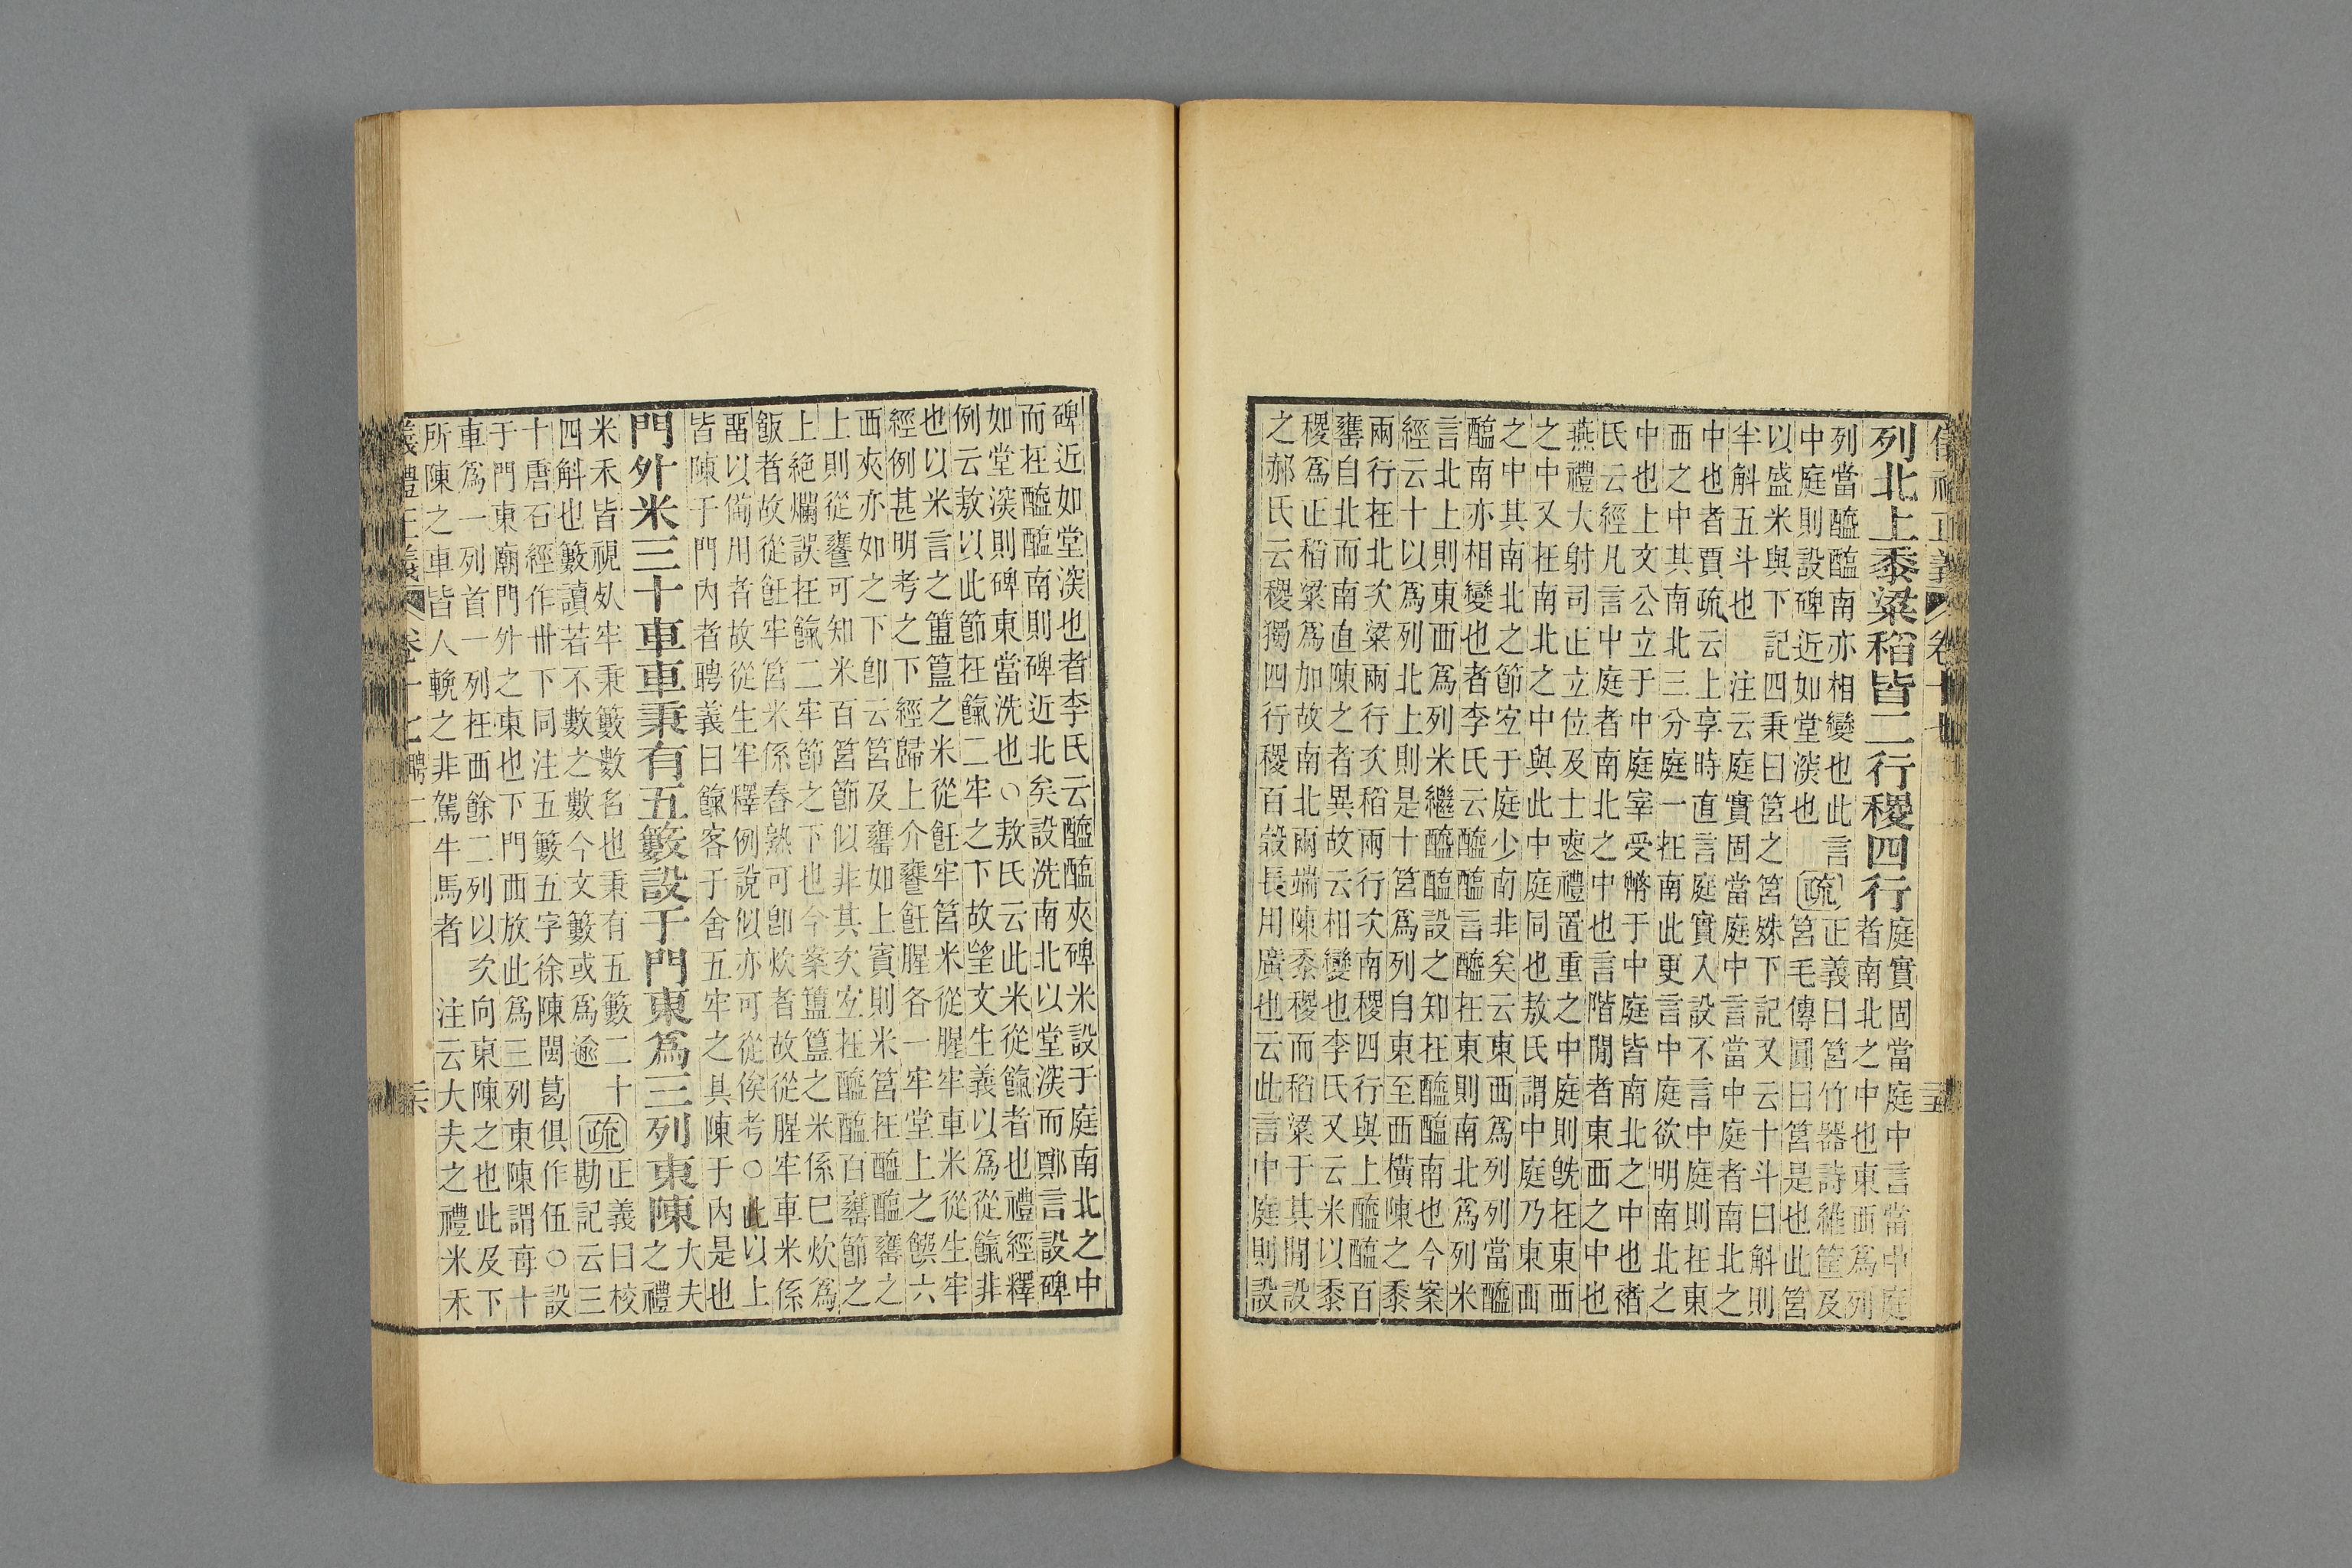 列北上黍粱稻皆二行稷四行庭實固當庭中言當中庭
者南北之中也東西爲列
列當醯醢南亦相變也此言
中庭則設碑近如堂深也疏正義曰筥竹器詩維筐及
筥毛傳圓曰筥是也此筥
以盛米與下記四秉曰筥之筥殊下記又云十斗曰斛則
半斛五斗也 注云庭實固當庭中言當中庭者南北之
中也者賈疏云上享時直言庭實入設不言中庭則在東
西之中其南北三分庭一在南此更言中庭欲明南北之
中也上文公立于中庭宰受幣于中庭皆南北之中也褚
氏云經凡言中庭者南北之中也言階閒者東西之中也
燕禮大射司正立位及士喪禮置重之中庭則旣在東西
之中又在南北之中與此中庭同也敖氏謂中庭乃東西
之中其南北之節宜于庭少南非矣云東西爲列列當醯
醢南亦相變也者李氏云醯醢言醯在東則南北爲列米
言北上則東西爲列米繼醯醢設之知在醯醢南也今案
經云十以爲列北上則是十筥爲列自東至西橫陳之黍
兩行在北次粱兩行次稻兩行次南稷四行與上醯醢百
罋自北而南直陳之者異故云相變也李氏又云米以黍
稷爲正稻粱爲加故南北兩端陳黍稷而稻粱于其閒設
之郝氏云稷獨四行稷百穀長用廣也云此言中庭則設
碑近如堂深也者李氏云醯醢夾碑米設于庭南北之中
而在醯醢南則碑近北矣設洗南北以堂深而鄭言設碑
如堂深則碑東當洗也○敖氏云此米從餼者也禮經釋
例云敖以此節在餼二牢之下故望文生義以爲從餼非
也以米言之簠簋之米從飪牢筥米從腥牢車米從生牢
經例甚明考之下經歸上介饔飪腥各一牢堂上之饌六
西夾亦如之下卽云筥及罋如上賓則米筥在醯醢罋之
上則從饔可知米百筥節似非其次宜在醯醢百罋節之
上絶爛誤在餼二牢節之下也今案簠簋之米係已炊爲
飯者故從飪牢筥米係舂熟可卽炊者故從腥牢車米係
畱以備用者故從生牢釋例說似亦可從俟考○此以上
皆陳于門內者聘義曰餼客于舍五牢之具陳于內是也
門外米三十車車秉有五籔設于門東爲三列東陳大夫
之禮
米禾皆視死牢秉籔數名也秉有五籔二十
四斛也籔讀若不數之數今文籔或爲逾疏正義曰校
勘記云三
十唐石經作卅下同注五籔五字徐陳閩葛俱作伍○設
于門東廟門外之東也下門西放此爲三列東陳謂每十
車爲一列首一列在西餘二列以次向東陳之也此及下
所陳之車皆人輓之非駕牛馬者 注云大夫之禮米禾